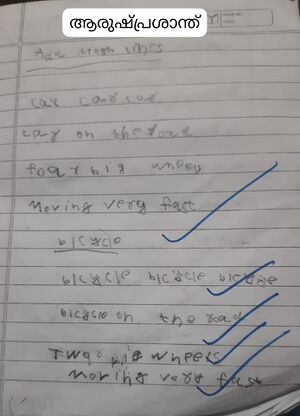 ആരുഷ്പ്രശാന്ത്
Add more lines
car car car
car on the load
foar big wheels
Moving very fast
bicycle
bicycle bicycle bicycle
bicycle on the rad
Two big wheels
moring very fast